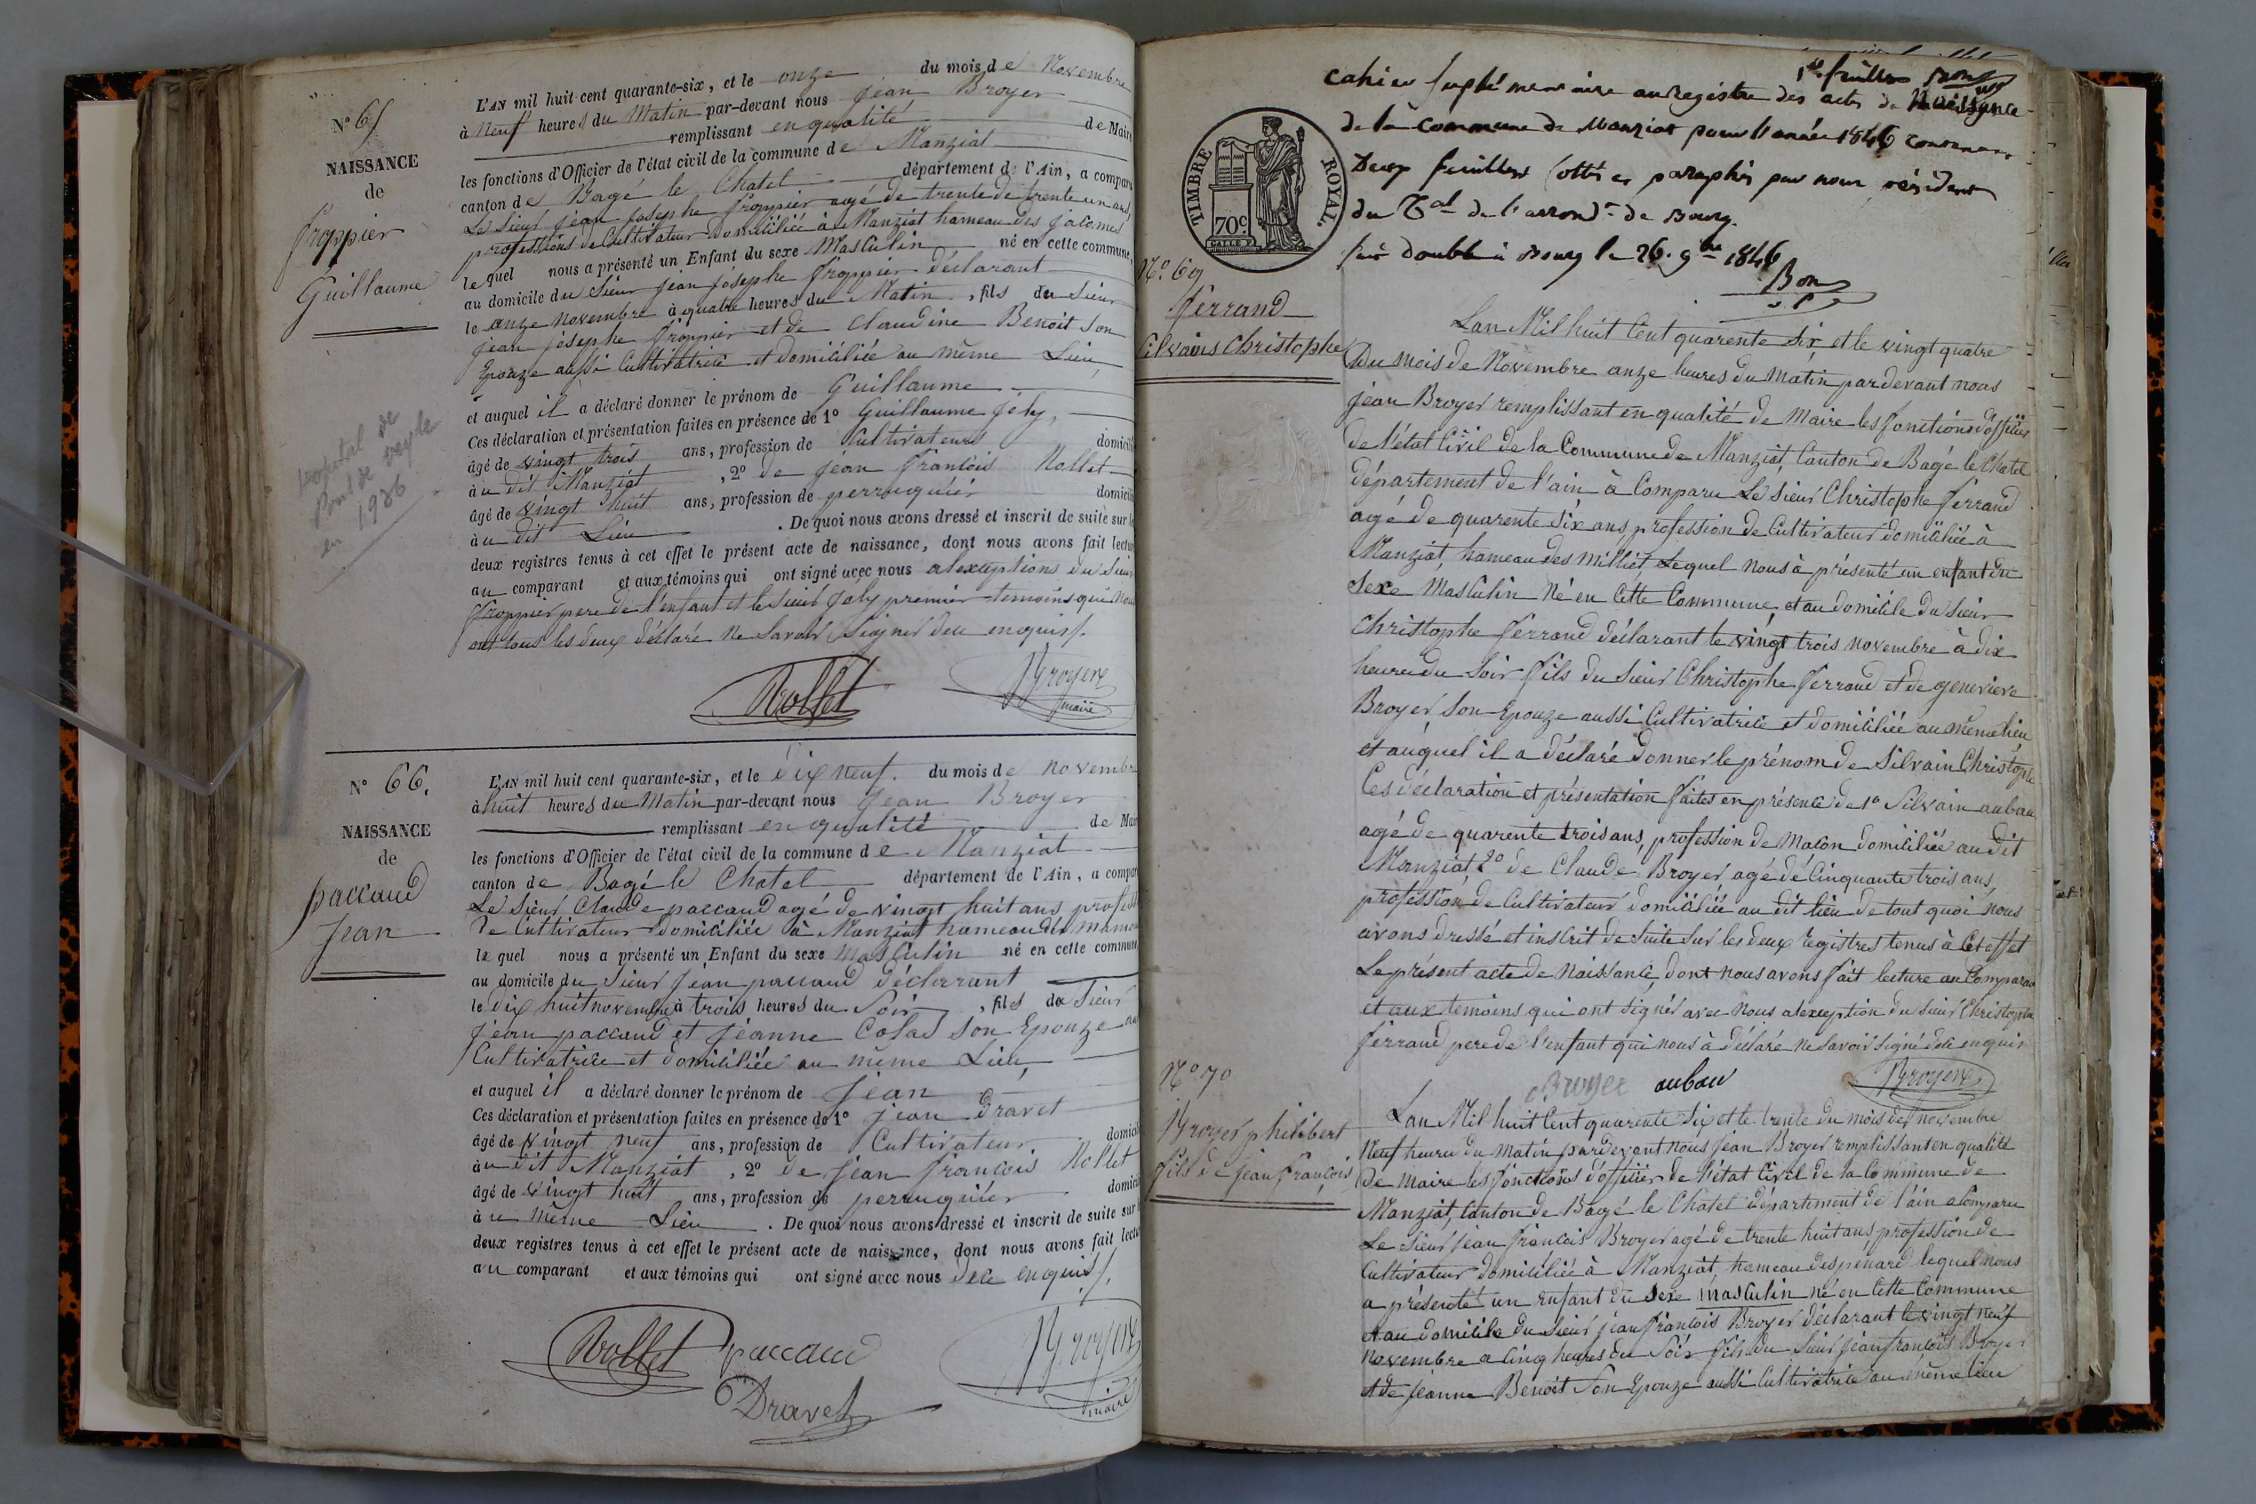 N° 65
NAISSANCE
de
froppier
Guillaume
L'AN mil huit cent quarante-six, et le onze du mois de Novembre
à Neuf heures du Matin par-devant nous Jean Broyer
remplissant en qualité de Maire
les fonctions d'Officier de l'état civil de la commune de Manziat
canton de Bagé le Chatel département de l'Ain, a comparu
Le Sieur Jean Josephe froppier agé de trente un ans,
professions de Cultivateur Domiciliée à Manziat hameau des jacomes
le quel nous a présenté un Enfant du sexe Masculin né en cette commune,
au domicile du Sieur jean josephe froppier déclarant
le onze novembre à quatre heures du Matin, fils du Sieur
jean josephe froppier et de Claudine Benoit son
Epouze aussi Cultivatrice et domiciliée au même Lieu
et auquel il a déclaré donner le prénom de Guillaume
Ces déclaration et présentation faites en présence de 1° Guillaume joly,
âgé de vingt trois ans, profession de Cultivateur domicilié
à u dit Manziat, 2° de jean francois Rollet
âgé de vingt huit ans, profession de perruquier domicilié
à u dit Lieu. De quoi nous avons dressé et inscrit de suite sur les
deux registres tenus à cet effet le présent acte de naissance, dont nous avons fait lecture
au comparant et aux témoins qui ont signé avec nous alexceptions du Sieur
froppier pere de l'enfant et le Sieur joly premier temoins qui nous
ont tous les deux déclaré ne Savoir Signer dece enquis.
hopital de
Pont de veyle
en 1926
Rollet
JBroyer
maire
N° 66.
NAISSANCE
de
paccaud
Jean
L'AN mil huit cent quarante-six, et le dix neuf. du mois de novembre
à huit heures du Matin par-devant nous Jean Broyer
remplissant en qualité de Maire
les fonctions d'Officier de l'état civil de la commune de Manziat
canton de Bagé le Chatel département de l'Ain, a comparu
Le Sieur Claude paccaud agé de vingt huit ans profession
de Cultivateur Domiciliée à Manziat hameau des
le quel nous a présenté un Enfant du sexe masculin né en cette commune
au domicile du Sieur jean paccaud déclarant
le dix huit novembre à trois heures du Soir, fils de Sieur
Jean paccaud et Jeanne Colas Son Epouze
Cultivatrice et domiciliée au même Lieu,
et auquel il a déclaré donner le prénom de Jean
Ces déclaration et présentation faites en présence de 1° jean Dravet
âgé de vingt neuf ans, profession de Cultivateur domicilié
à u dit Manziat, 2° de jean francois Rollet
âgé de vingt huit ans, profession de perruquier domicilié
à u même Lieu. De quoi nous avons dressé et inscrit de suite sur les
deux registres tenus à cet effet le présent acte de naissance, dont nous avons fait lecture
au comparant et aux témoins qui ont signé avec nous dece enquis.
Rollet paccaud JBroyer
Dravet maire
1er feuillet Bon
Cahier suplémentaire au registre des actes de Naissance
de la commune de Manziat pour l'année 1846 contenant
Deux feuillets Cottés et paraphés par nous président
du Tal de l'arrondt de Bourg.
fait double à Bourg le 26. 9bre 1846
Bon
TIMBRE ROYAL
70c
N° 69
ferrand
Silvains Christophe
Lan Mil huit Cent quarente Six, et le vingt quatre
Du mois de Novembre onze heures du matin par devant nous
jean Broyer remplissant en qualité de Maire les fonctions dofficier
de l'état Civil de la Commune de Manziat, Canton de Bagé le Chatel
département de l'ain à Comparu Le Sieur Christophe ferrand
agé de quarente Six ans, profession de Cultivateur domiciliée à
Manziat, hameau des Milliet Lequel nous à présenté un enfant du
Sexe Masculin Né en Cette Commune, et au domicile du Sieur
Christophe ferrand déclarant le vingt trois novembre à dix
heures du Soir fils du Sieur Christophe ferrand et de genevieve
Broyer Son Epouze aussi Cultivatrice et domiciliée au même lieu
et auquel il a déclaré Donner le prénom de Silvain Christophe
Ces déclaration et présentation faites en présence de 1° Silvain aubau
agé de quarente trois ans, profession de Macon domiciliée au dit
Manziat, 2° de Claude Broyer agé de Cinquante trois ans,
profession de Cultivateur domiciliée au dit lieu de tout quoi nous
avons dressé et inscrit de Suite Sur les deux registres tenus à Cet effet
Le présent acte de naissance, dont nous avons fait lecture au Comparant
et aux temoins qui ont Signés avec nous alexception du Sieur Christophe
ferrand pere de l'enfant qui nous à déclaré ne Savoir signé dece enquis
Broyer aubau JBroyer
N° 70
Broyer philibert
fils de Jean françois
Lan Mil huit Cent quarente Six et le trente du mois de novembre
Neuf heures du Matin pardevant nous jean Broyer remplissant en qualité
De Maire les fonctions d'officier de l'état Civil de la Commune de
Manziat, Canton de Bagé le Chatel département de l'ain a Comparu
Le Sieur jean francois Broyer agé de trente huit ans, profession de
Cultivateur domiciliée à Manziat, hameau des penard lequel nous
a présenté un Enfant du Sexe masculin né en Cette Commune
et au domicile du Sieur jean francois Broyer déclarant le vingt neuf
novembre a Cinq heures du Soir fils du Sieur jean francois Broyer
et de jeanne Benoit Son Epouze aussi Cultivatrice au même lieu